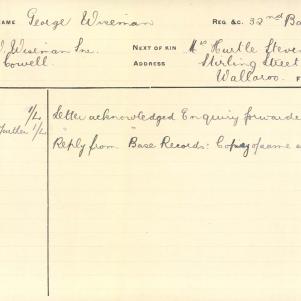 NAME George Wiseman REG &C. 32nd Ba
J. Wiseman Snr. NEXT OF KIN Mrs Hurtle Steve
Cowell ADDRESS Stirling Street
Wallaroo F
1/2 Letter acknowledged Enquiry forwarde
Further 1/2 Reply from Base Records: Copy of same a